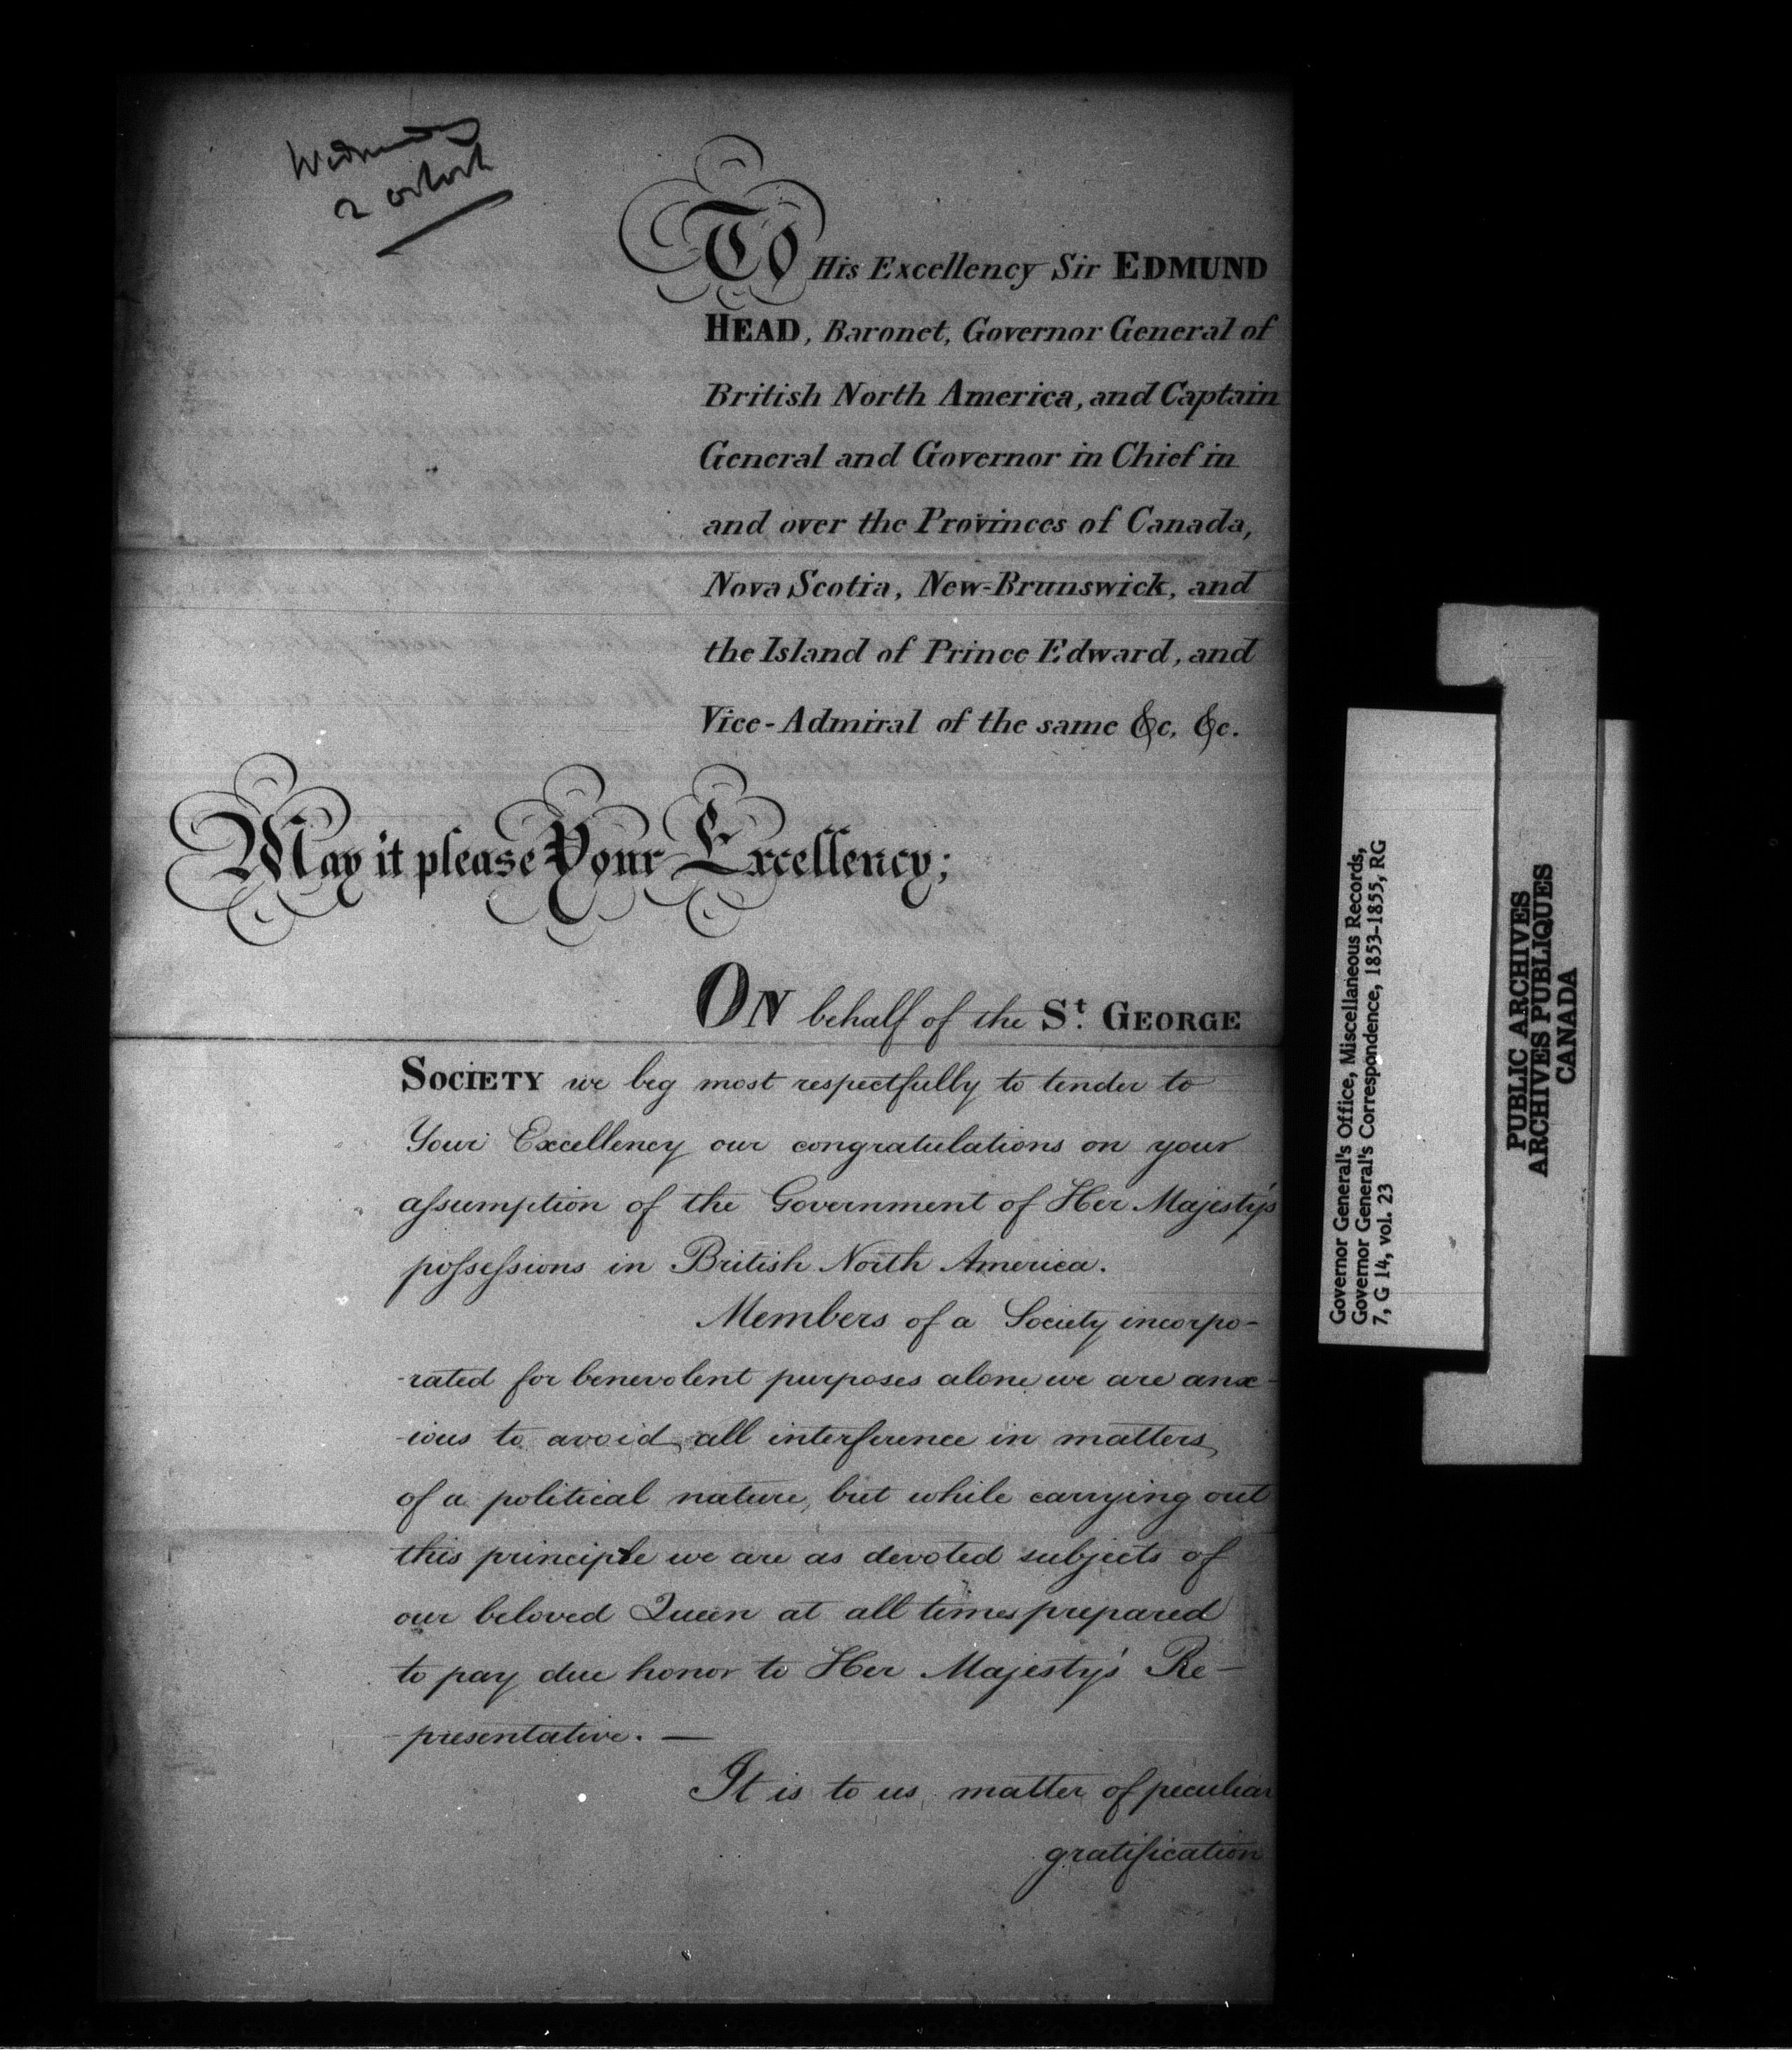 Wednesday
2 oclock
To His Excellency Sir EDMUND
HEAD, Baronet, Governor General of
British North America, and Captain
General and Governor in Chief in
and over the Provinces of Canada,
Nova Scotia, New-Brunswick, and
the Island of Prince Edward, and
Vice-Admiral of the same &c. &c.
May it please Your Excellency;
ON behalf of the St. GEORGE
SOCIETY we beg most respectfully to tender to
Your Excellency our congratulations on your
assumption of the Government of Her Majesty's
possessions in British North America.
Members of a Society incorpo-
-rated for benevolent purposes alone we are anx-
-ious to avoid all interference in matters
of a political nature, but while carrying out
this principle we are as devoted subjects of
our beloved Queen at all times prepared
to pay due honor to Her Majesty's Re-
-presentative. —
It is to us matter of peculiar
gratification
Governor General's Office, Miscellaneous Records,
Governor General's Correspondence, 1853-1855, RG
7, G 14, vol. 23
PUBLIC ARCHIVES
ARCHIVES PUBLIQUES
CANADA